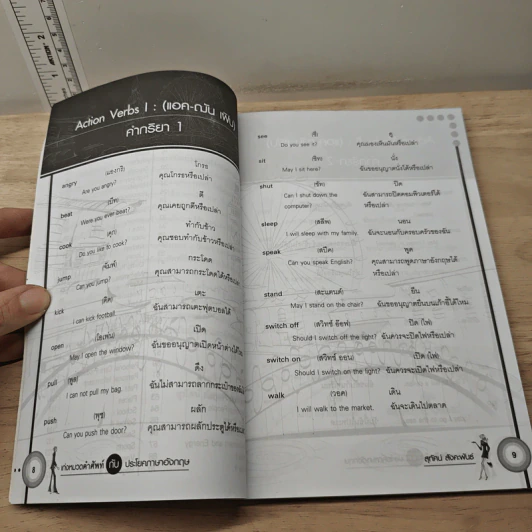 Action Verbs 1 : (แอค-ฌัน เฟิบ)
คำกริยา 1
angry (แองกรี) โกรธ
Are you angry? คุณโกรธหรือเปล่า
beat (บีท) ตี
Were you ever beat? คุณเคยถูกตีหรือเปล่า
cook (คุก) ทำกับข้าว
Do you like to cook? คุณชอบทำกับข้าวหรือเปล่า
jump (จัมพ์) กระโดด
Can you jump? คุณสามารถกระโดดได้หรือ
kick (คิค) เตะ
I can kick football. ฉันสามารถเตะฟุตบอลได้
open (โอเพ่น) เปิด
May I open the window? ฉันขออนุญาตเปิดหน้าต่างได้
pull (พูล) ดึง
I can not pull my bag. ฉันไม่สามารถลากกระเป๋าของฉัน
push (พุช) ผลัก
Can you push the door? คุณสามารถผลักประตูได้หรือ
8 ท่องหมวดคำศัพท์ กับ ประโยคภาษาอังกฤษ
see (ซี) ดู
Do you see it? คุณมองเห็นมันหรือเปล่า
sit (ซิท) นั่ง
May I sit here? ฉันขออนุญาตนั่งได้หรือเปล่า
shut (ชัท) ปิด
Can I shut down the ฉันสามารถปิดคอมพิวเตอร์ได้
computer? หรือเปล่า
sleep (สลีพ) นอน
I will sleep with my family. ฉันจะนอนกับครอบครัวของฉัน
speak (สปีค) พูด
Can you speak English? คุณสามารถพูดภาษาอังกฤษได้
หรือเปล่า
stand (สะแตนด์) ยืน
May I stand on the chair? ฉันขออนุญาตยืนบนเก้าอี้ได้ไหม
switch off (สวิทช์ อ๊อฟ) ปิด (ไฟ)
Should I switch off the light? ฉันควรจะปิดไฟหรือเปล่า
switch on (สวิทช์ ออน) เปิด (ไฟ)
Should I switch on the light? ฉันควรจะเปิดไฟหรือเปล่า
walk (วอค) เดิน
I will walk to the market. ฉันจะเดินไปตลาด
สุทัศน์ สังคะพันธ์ 9